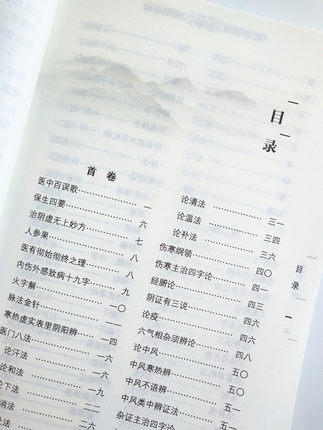 目录
首卷
医中百误歌……一
保生四要……六
治阴虚无上妙方……七
人参果……八
医有彻始彻终之理……八
内伤外感致病十九字……九
火字解……
脉法金针……一〇
寒热虚实表里阴阳辨……一四
医门八法……一六
论汗法……一六
论和法……
论下法……
消法……
论清法……三一
论温法……三四
论补法……三六
伤寒纲领……四〇
伤寒主治四字论……四〇
经腑论……四一
阴证有三说……四三
论疫……
六气相杂须辨论……
论中风……四八
中风寒热辨……五〇
中风不语辨……
中风类中辨证法……五一
杂证主治四字论……
目录
一